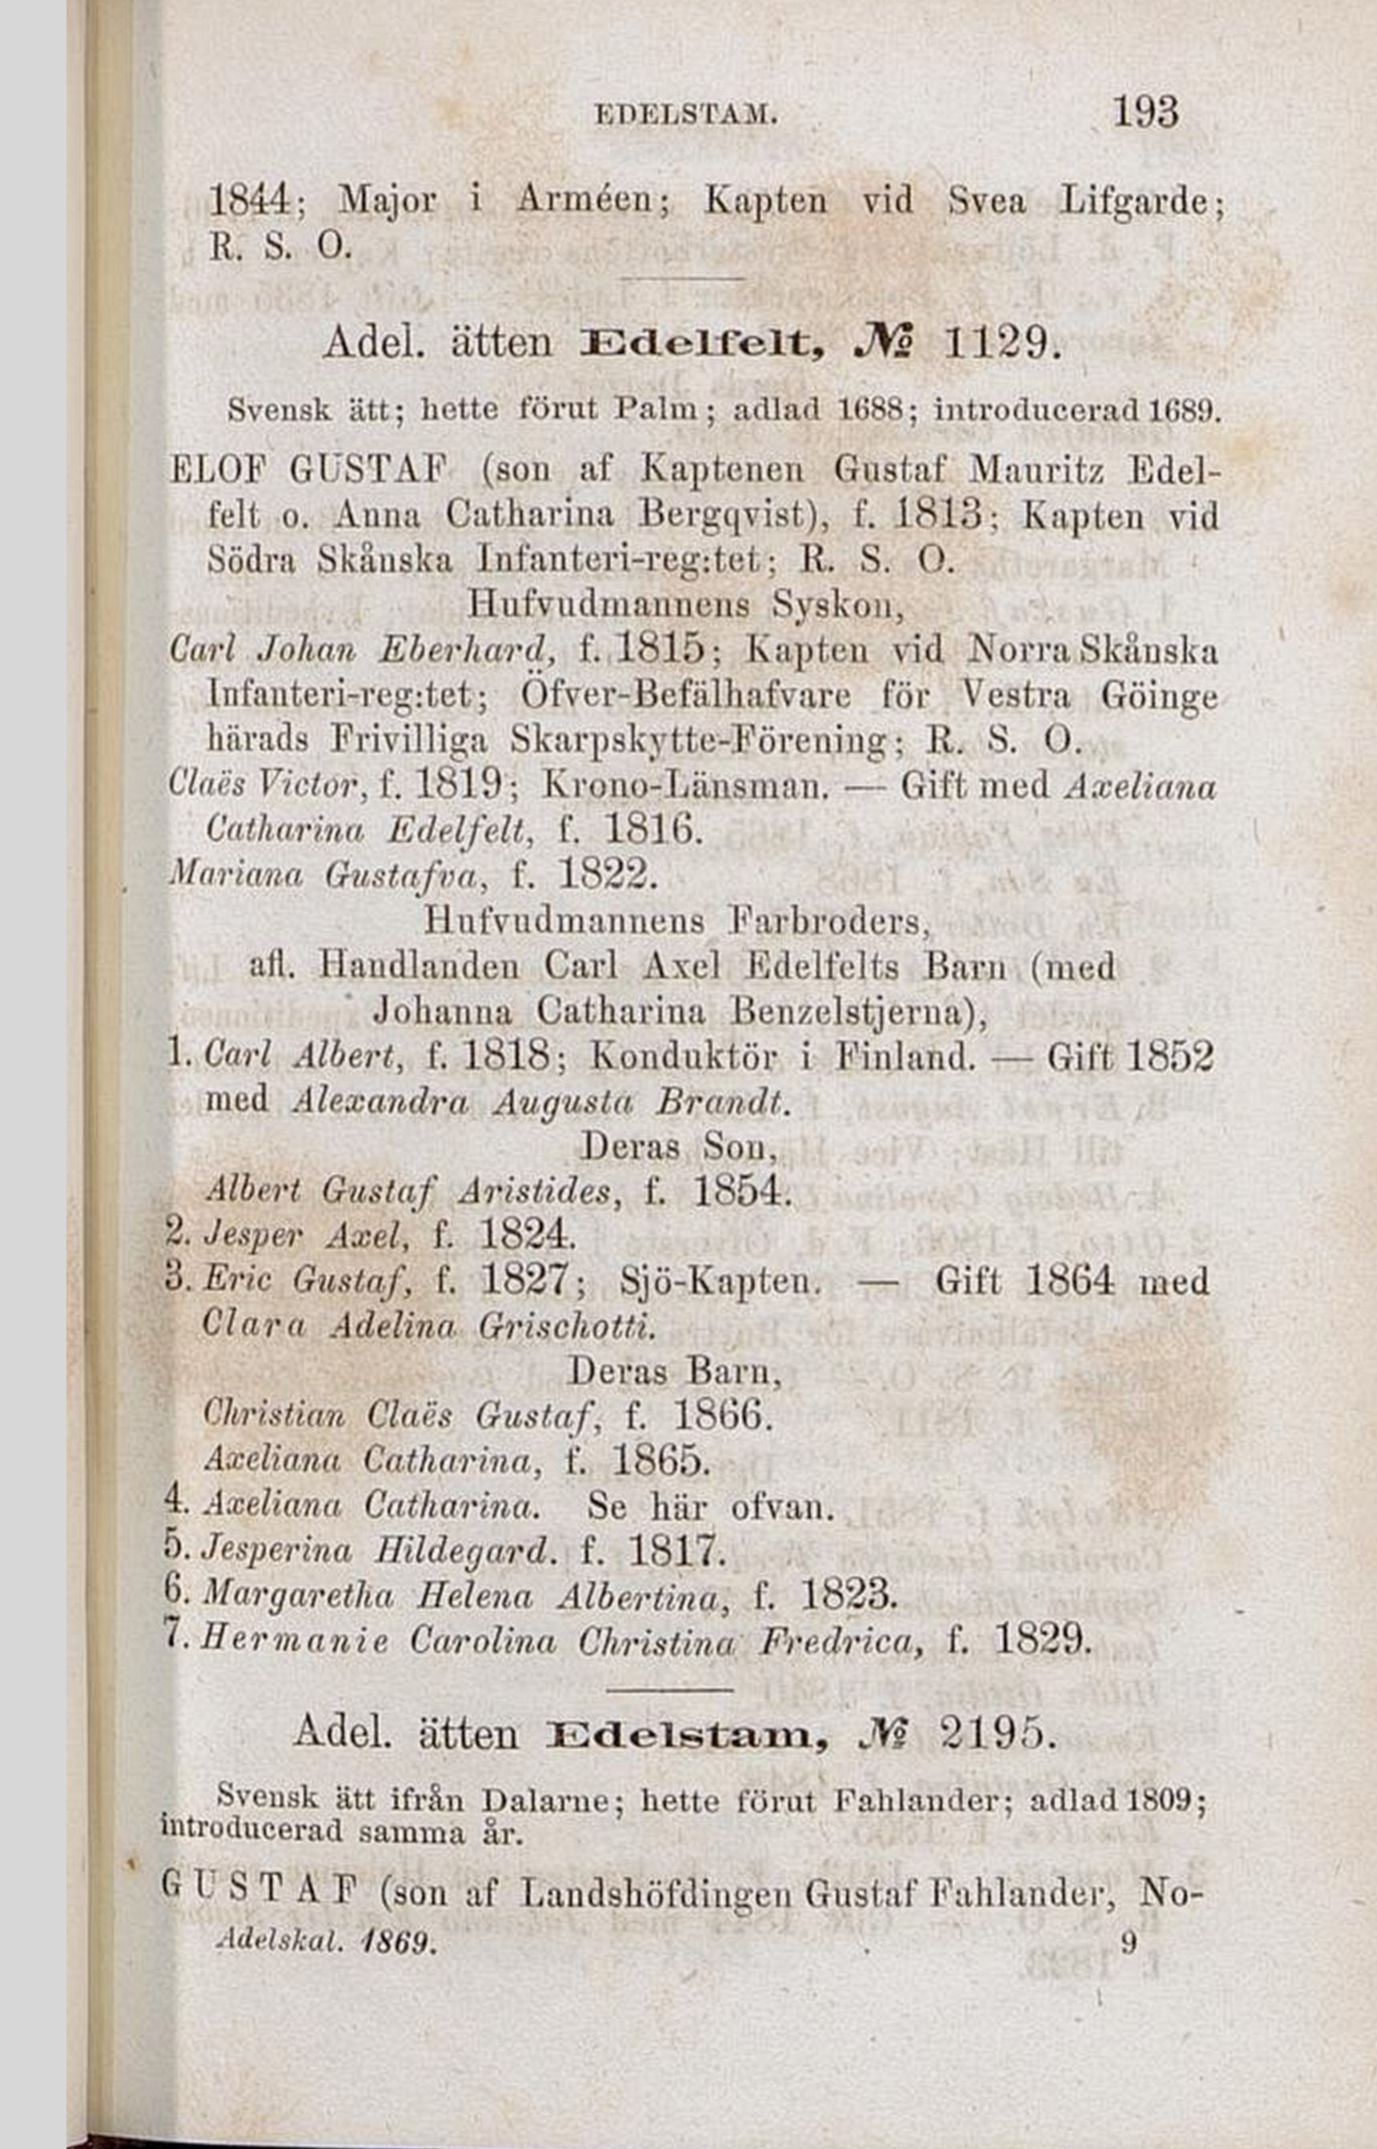 EDELSTAM. 193
1844; Major i Arméen; Kapten vid Svea Lifgarde;
R. S. O.
Adel. ätten Edelfelt, № 1129.
Svensk ätt; hette förut Palm; adlad 1688; introducerad 1689.
ELOF GUSTAF (son af Kaptenen Gustaf Mauritz Edel-
felt o. Anna Catharina Bergqvist), f. 1813; Kapten vid
Södra Skånska Infanteri-reg:tet; R. S. O.
Hufvudmannens Syskon,
Carl Johan Eberhard, f. 1815; Kapten vid Norra Skånska
Infanteri-reg:tet; Öfver-Befälhafvare för Vestra Göinge
härads Frivilliga Skarpskytte-Förening; R. S. O.
Claës Victor, f. 1819; Krono-Länsman. — Gift med Axeliana
Catharina Edelfelt, f. 1816.
Mariana Gustafva, f. 1822.
Hufvudmannens Farbroders,
afl. Handlanden Carl Axel Edelfelts Barn (med
Johanna Catharina Benzelstjerna),
1. Carl Albert, f. 1818; Konduktör i Finland. — Gift 1852
med Alexandra Augusta Brandt.
Deras Son,
Albert Gustaf Aristides, f. 1854.
2. Jesper Axel, f. 1824.
3. Eric Gustaf, f. 1827; Sjö-Kapten. — Gift 1864 med
Clara Adelina Grischotti.
Deras Barn,
Christian Claës Gustaf, f. 1866.
Axeliana Catharina, f. 1865.
4. Axeliana Catharina. Se här ofvan.
5. Jesperina Hildegard. f. 1817.
6. Margaretha Helena Albertina, f. 1823.
7. Hermanie Carolina Christina Fredrica, f. 1829.
Adel. ätten Edelstam, № 2195.
Svensk ätt ifrån Dalarne; hette förut Fahlander; adlad 1809;
introducerad samma år.
GUSTAF (son af Landshöfdingen Gustaf Fahlander, No-
Adelskal. 1869. 9